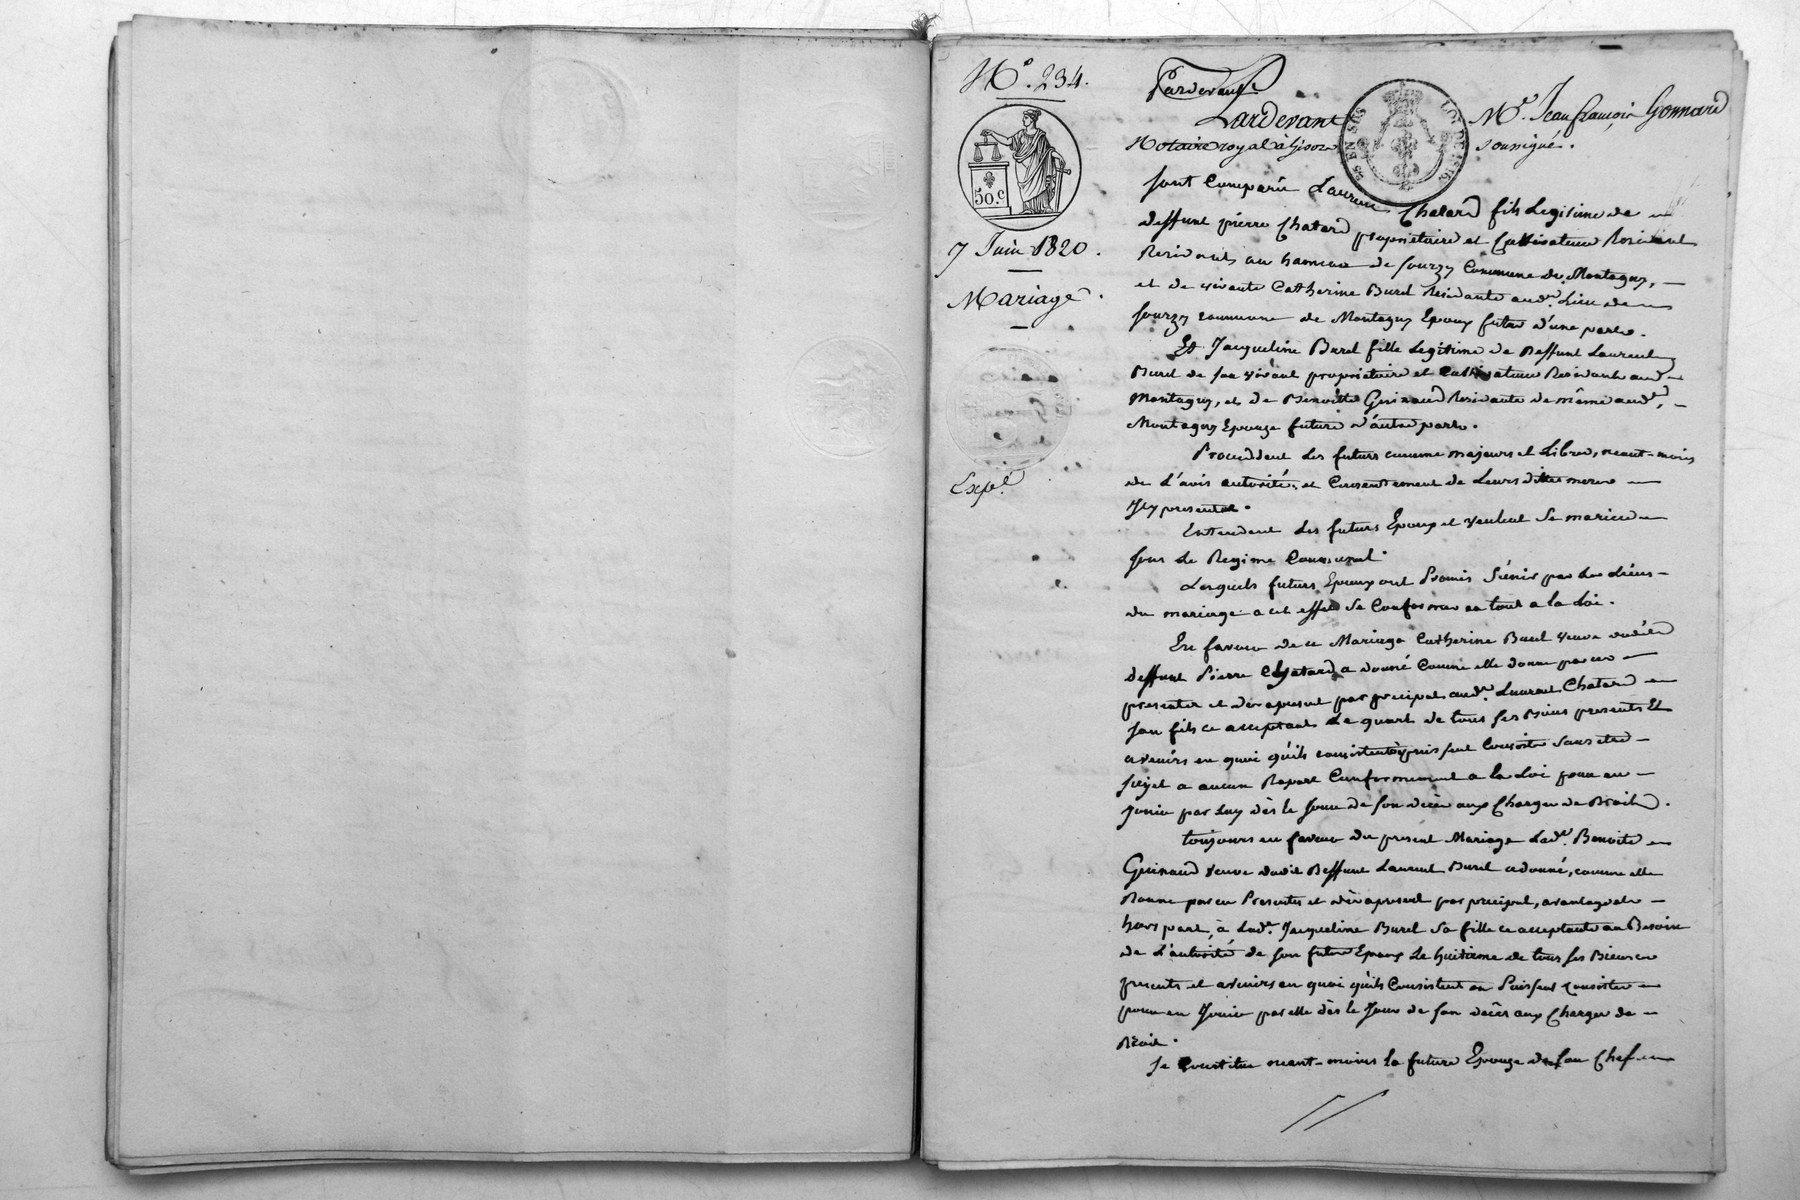 N.° 234.
50.c
7 Juin 1820.
Mariage.
Expé.
Pardevant
Pardevant M.e Jean françois Gonnard
Notaire royal à Givors soussigné.
25 EN SUS LOI DE 1816
sont Comparu Laurent Chatard fils Legitime de
deffunt pierre Chatard proprietaire et Cultivateur Residant
Residants au hameau de sourzy Commune de Montagny,
et de vivante Catherine Burel Residante aud.t Lieu de
sourzy commune de Montagny Epoux futur d'une part.
Et Jacqueline Burel fille Legitime de Deffunt Laurent
Burel de son vivant proprietaire et Cultivateur Residant aud.
Montagny, et de Benoitte Guinand Residante de même aud.t
Montagny Epouze future d'autre part.
Proceddent les futurs comme majeurs et Libres, neant-moins
de L'avis autorité, et Consentement de Leurs dittes meres
Icy presentes.
Entendent les futurs Epoux et veulent se marier
sous le Regime Communal.
Lesquels futurs Epoux ont Promis S'únir par les Liéns
du mariage a cet effet se Conformer en tout a la Loi.
En faveur de ce Mariage Catherine Burel veuve dudit
deffunt Pierre Chatard a donné Comme elle donne par ces
presentes et dès apresent par preciput aud.t Laurent Chatard
son fils ce acceptant Le quart de tous ses Biens presents Et
avenirs en quoi qu'ils consistent ou puissent Consister sans etre
sujet a aucun Raport Conformement a la Loi pour en
Jouir par Luy dès le Jour de son decès aux Charges de Droit.
toujours en faveur du present Mariage Lad.e Benoite
Guinand veuve dudit Deffunt Laurent Burel a donné, comme elle
Donne par ces Presentes et dès apresent par preciput, avantage et
hors part, à Lad.e Jacqueline Burel sa fille ce acceptante au Besoin
de L'autorité de son futur Epoux Le huitieme de tous ses Biens
presents et avenirs en quoi qu'ils Consistent ou Puissent consister
pour en Jouir par elle dès le Jour de son decès aux Charges de
Droit.
Se Constitue neant-moins la future Epouze de son Chef